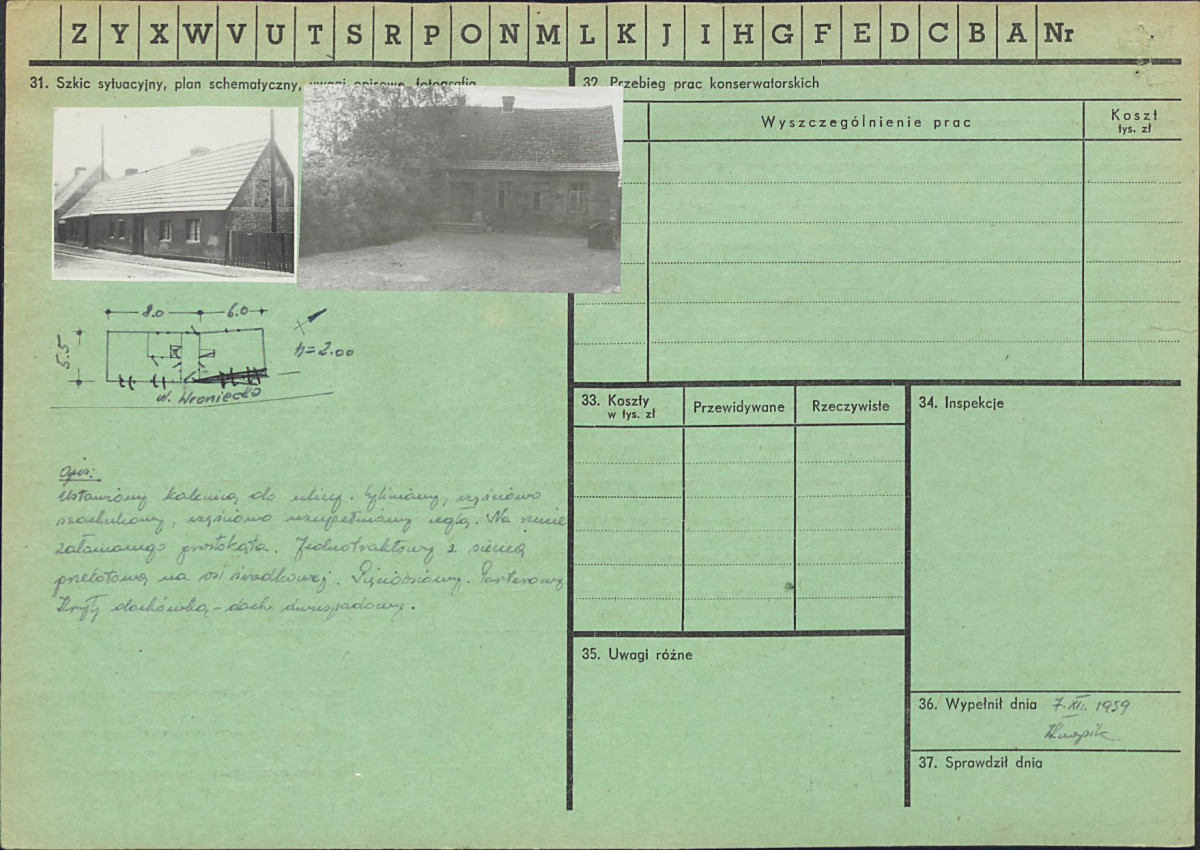 Z Y X W V U T S R P O N M L K J I H G F E D C B A Nr
31. Szkic sytuacyjny, plan schematyczny, uwagi opisowe, fotografia
8.0 6.0
5.5
h=2.00
ul. Wroniecka
Opis:
Ustawiony kalenicą do ulicy. Gliniany, częściowo
szachulcowy, częściowo uzupełniony cegłą. Na rzucie
załamanego prostokąta. Jednotraktowy z sienią
przelotową na osi środkowej. Pięcioosiowy. Parterowy
Kryty dachówką - dach dwuspadowy.
32. Przebieg prac konserwatorskich
Wyszczególnienie prac
Koszt
tys. zł
33. Koszty
w tys. zł
Przewidywane
Rzeczywiste
34. Inspekcje
35. Uwagi różne
36. Wypełnił dnia 7.XII. 1959
37. Sprawdził dnia